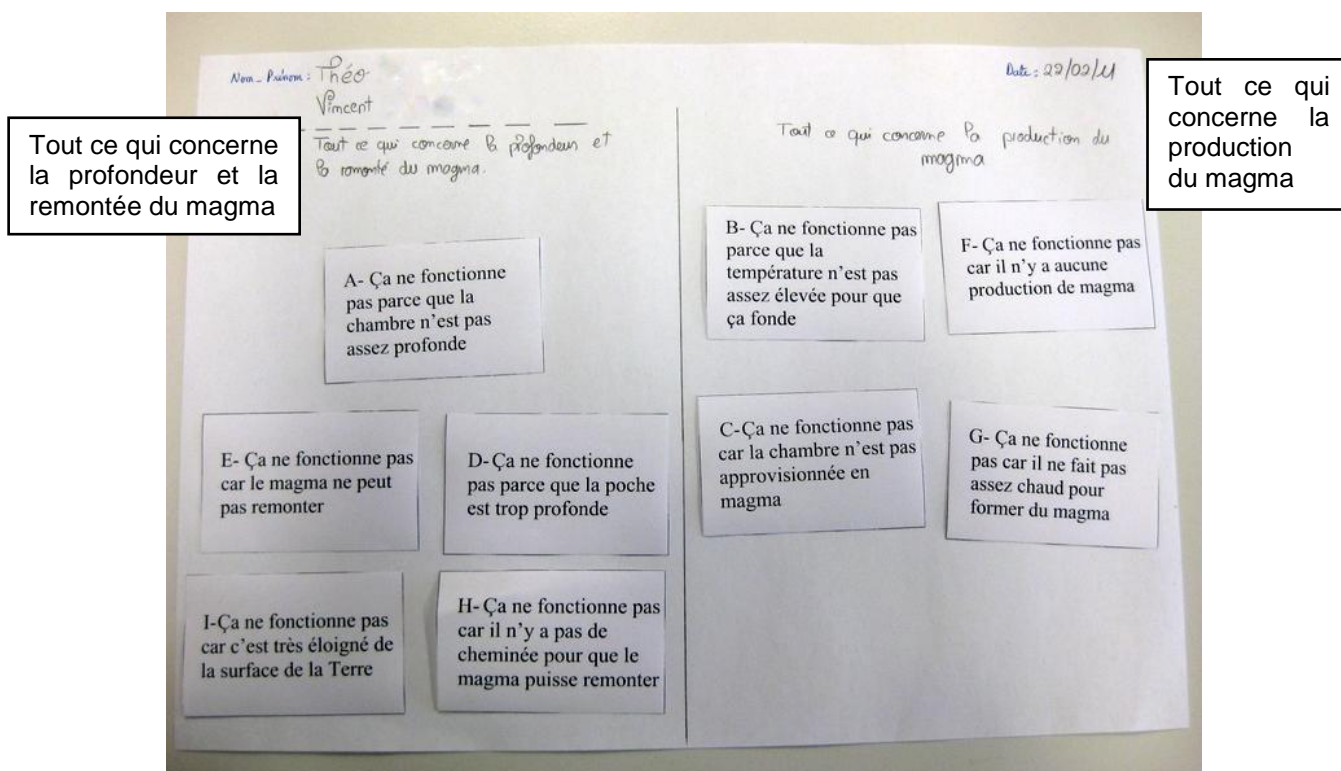 Nom - Prénom : Théo
Vincent
Date : 22/02/11
Tout ce qui concerne
la profondeur et la
remontée du magma
Tout ce qui concerne la profondeur et
la romonté du magma.
Tout ce qui concerne la production du
magma
Tout ce qui
concerne la
production
du magma
A- Ça ne fonctionne
pas parce que la
chambre n'est pas
assez profonde
E- Ça ne fonctionne pas
car le magma ne peut
pas remonter
D- Ça ne fonctionne
pas parce que la poche
est trop profonde
I-Ça ne fonctionne pas
car c'est très éloigné de
la surface de la Terre
H- Ça ne fonctionne pas
car il n'y a pas de
cheminée pour que le
magma puisse remonter
B- Ça ne fonctionne pas
parce que la
température n'est pas
assez élevée pour que
ça fonde
F- Ça ne fonctionne pas
car il n'y a aucune
production de magma
C-Ça ne fonctionne pas
car la chambre n'est pas
approvisionnée en
magma
G- Ça ne fonctionne
pas car il ne fait pas
assez chaud pour
former du magma